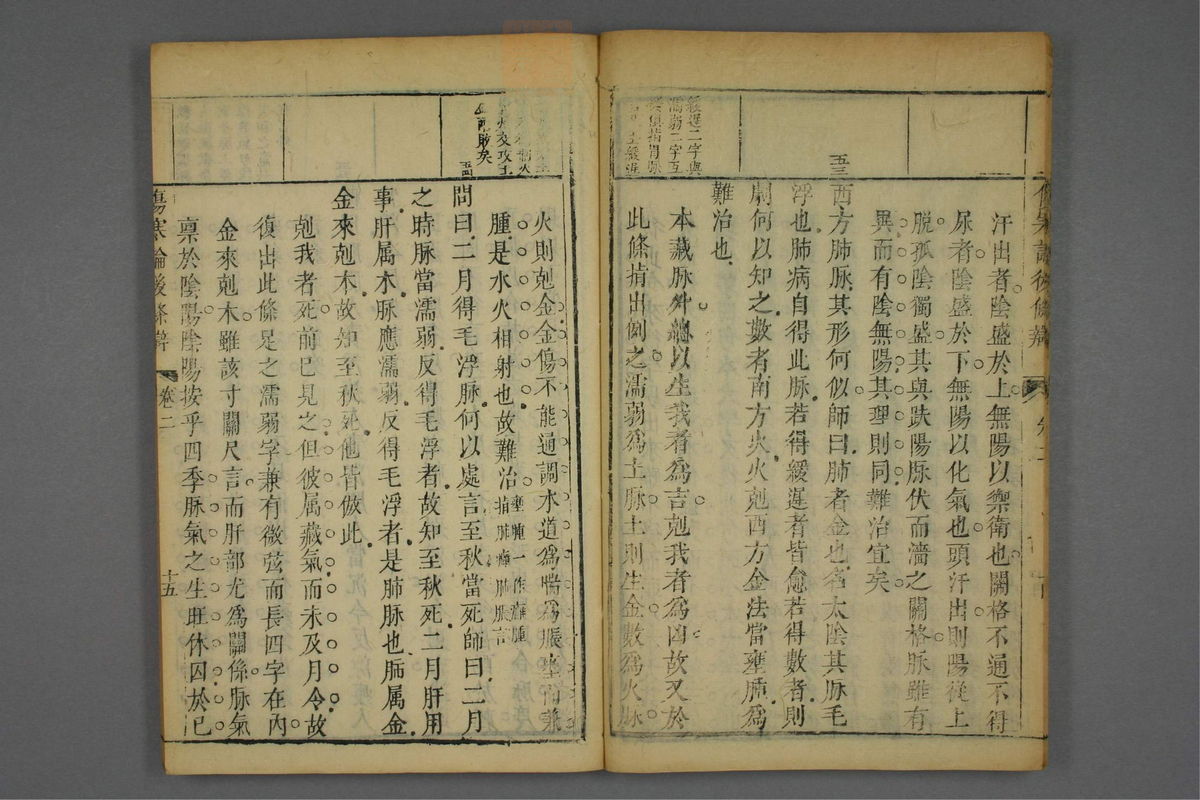 緩遲二字與
濡弱二字互
五三
汗出者陰盛於上無陽以禦衛也關格不通不得
尿者陰盛於下無陽以化氣也頭汗出則陽從上
脫孤陰獨盛其與趺陽脈伏而濇之關格脈雖有
異而有陰無陽其理則同難治宜矣
西方肺脈其形何似師曰肺者金也名太陰其脈毛
浮也肺病自得此脈若得緩遲者皆愈若得數者則
劇何以知之數者南方火火剋西方金法當壅腫爲
難治也
本藏脈外總以生我者爲吉剋我者爲凶故又於
此條揹出例之濡弱爲土脈土則生金數爲火脈
五四
火則剋金金傷不能通調水道爲喘爲脹壅而兼
腫是水火相射也故難治壅腫一作癰腫
指肺癰肺脹言
問曰二月得毛浮脈何以處言至秋當死師曰二月
之時脈當濡弱反得毛浮者故知至秋死二月肝用
事肝属木脈應濡弱反得毛浮者是肺脈也肺属金
金來剋木故知至秋死他皆倣此
剋我者死前已見之但彼属藏氣而未及月令故
復出此條足之濡弱字兼有微弦而長四字在內
金來剋木雖該寸關尺言而肝部尤爲關係脈氣
稟於陰陽陰陽按乎四季脈氣之生旺休囚於已
傷寒論後條辨 卷二 十五